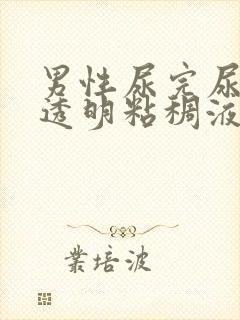 男性尿完尿
透明粘稠液
業培波